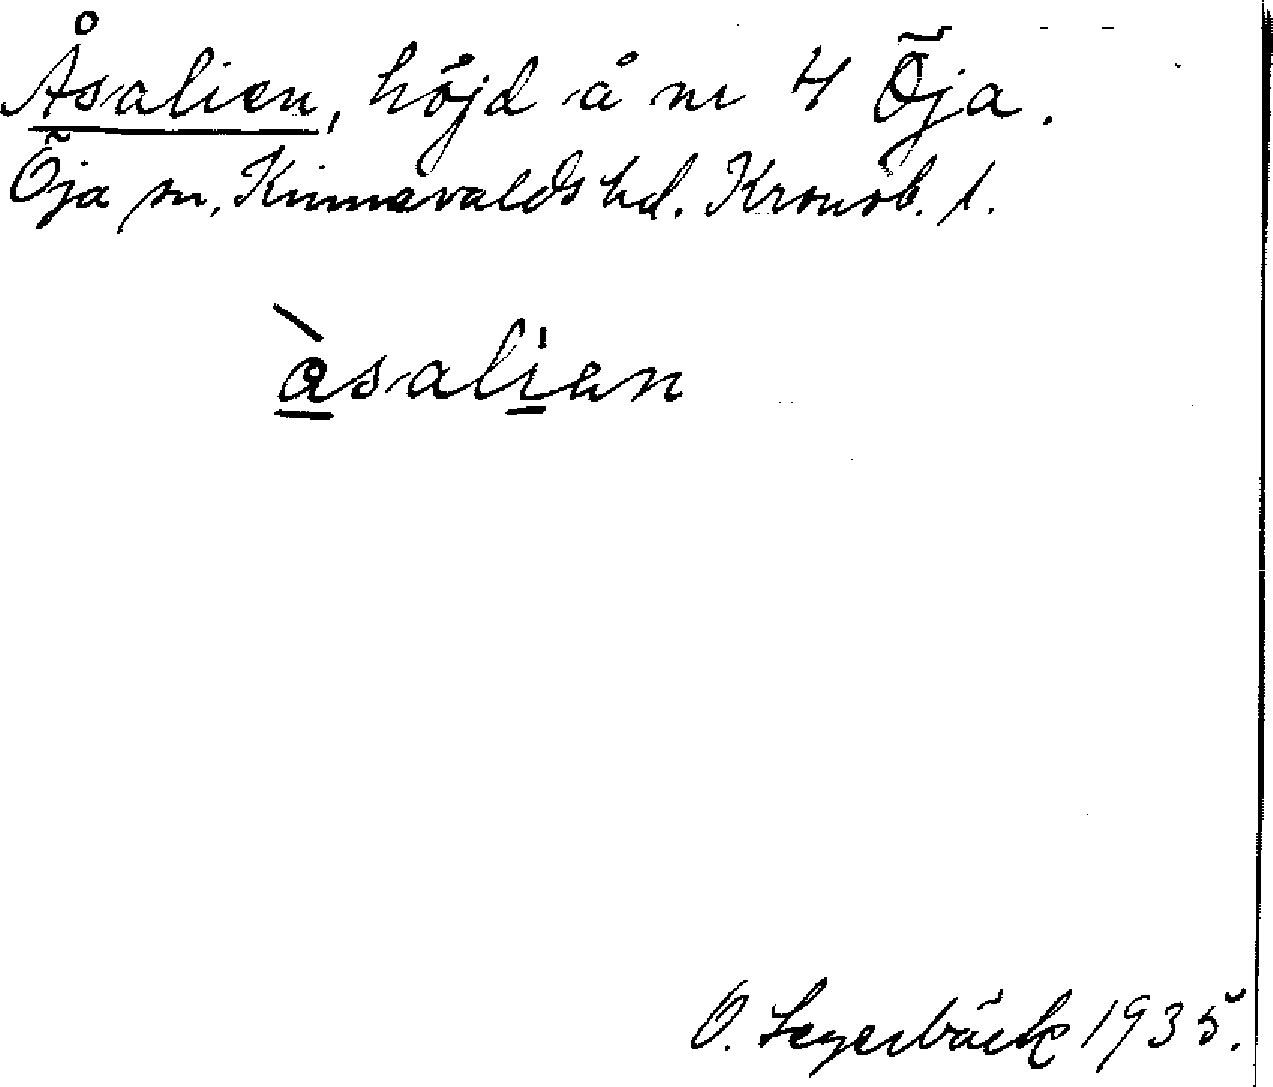 Åsalien, höjd å nr 4 Öja.
Öja sn, Kinnevalds hd. Kronob. l.
àsalien
O. Segerbäck 1935.